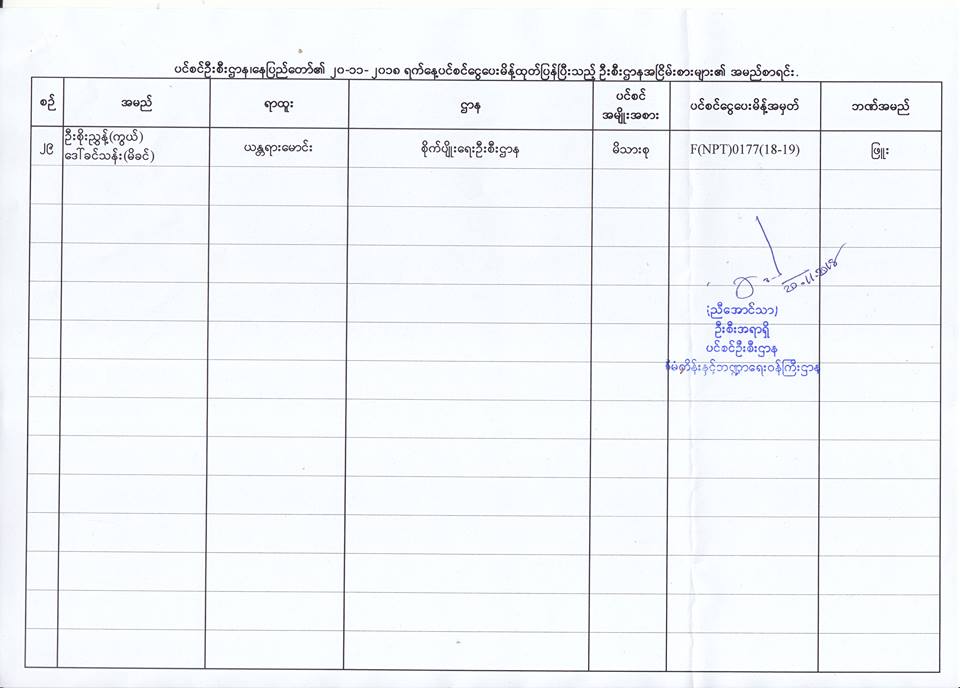 ပင်စင်ဦးစီးဌာန၊နေပြည်တော်၏ ၂၀-၁၁-၂၀၁၈ ရက်နေ့ပင်စင်ငွေပေးမိန့်ထုတ်ပြန်ပြီးသည့် ဦးစီးဌာနအငြိမ်းစားများ၏ အမည်စာရင်း.
စဉ် အမည် ရာထူး ဌာန ပင်စင် အမျိုးအစား ပင်စင်ငွေပေးမိန့်အမှတ် ဘဏ်အမည်
၂၉ ဦးစိုးညွှန့်(ကွယ်) ဒေါ်ခင်သန်း(မိခင်) ယန္တရားမောင်း စိုက်ပျိုးရေးဦးစီးဌာန မိသားစု F(NPT)0177(18-19) ဖြူး
20-11-2018
(ညီအောင်သာ)
ဦးစီးအရာရှိ
ပင်စင်ဦးစီးဌာန
စီမံကိန်းနှင့်ဘဏ္ဍာရေးဝန်ကြီးဌာန